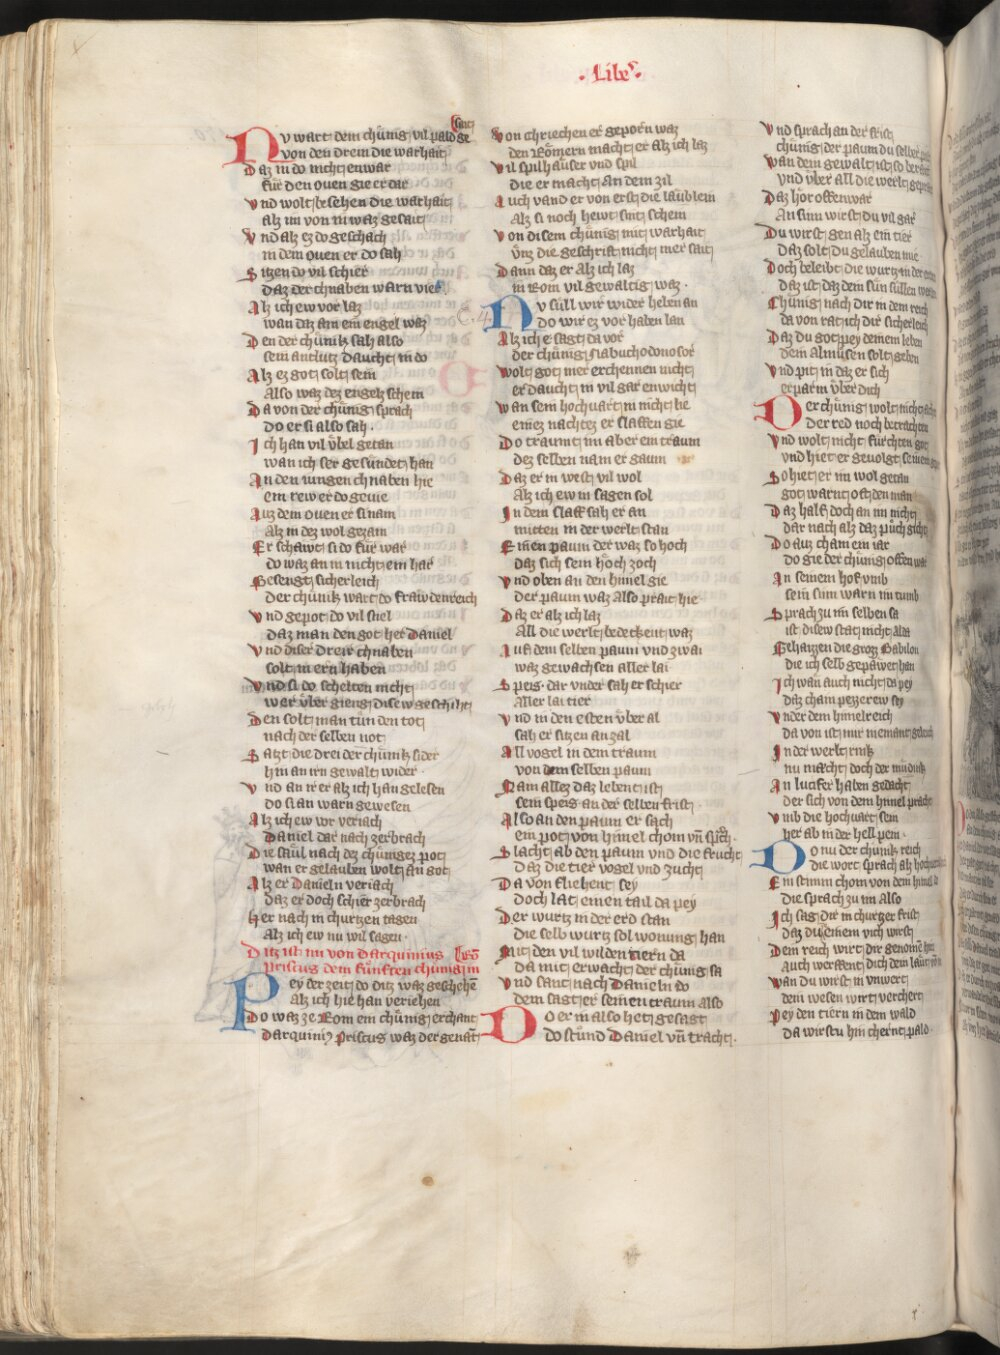 · Liber ·
Nv wart dem chünig vil pald ge
sait
von den drein die warhait
Daz in do nicht enwar
für den ouen gie er dar
Vnd wolt besehen die warhait
alz im von in waz gesait
Vnd alz ez do geschach
in dem ouen er do sah
Sitzen do vil schier
daz der chnaben warn vier
Alz ich ew vor laz
wan daz ain ein engel waz
Den der chünik sah also
sein antlutz daucht in do
Alz ez got solt sein
Also waz dez engelz schein
Da von der chünig sprach
do er si also sah .
Ich han vil vbel getan
wan ich ser gesündet han
An den iungen chnaben hie
ein rew er do gevie
Auz dem ouen er si nam
Alz in dez wol gezam
Er schawt si do für war
do waz an in nicht ein har
Besengt sicherleich
Der chünik wart do frawdenreich
Vnd gepot do vil snel
daz man den got her Daniel
Vnd diser dreir chnaben
solt in ern haben
Vnd si do schelten nicht
wer vber gieng disew geschiht
Den solt man tün den tot
nach der selben not
Satzt die drei der chünik sider
hin an irn gewalt wider ·
Vnd an ir er alz ich han gelesen
do si an warn gewesen
Alz ich ew vor veriach
Daniel dar nach zerbrach
Die saül nach dez chüngez pot
wan er gelauben wolt an got
Alz er Danieln veriach
daz er doch schier zerbrach
Her nach in churtzen tagen
Alz ich ew nu wil sagen ·
Ditz ist nu von darquinius
Priscus dem fünften chünig in
Pey der zeit do ditz waz geschehen̄
Alz ich hie han veriehen
Do waz ze Rom ein chünig erchant
Darquini9 Priscus waz der genāt
Von chriechen er geporn waz
den Römern macht er alz ich laz
Vil spilhäuser vnd spil
die er macht an dem zil
Auch vand er von erst die läublein
Alz si noch hewt sint schein
Von disem chünig mit warhait
vnz die geschrift nicht mer sait
Dann daz er alz ich laz
in Rom vil gewaltig waz ·
C. 4.
Nv süll wir wider heben an
do wir ez vor haben lan
Alz ich e sagt da vor
der chünig Nabuchodonosor
Wolt got mer erchennen nicht
er daucht in vil gar enwicht
Wan sein hochuart in nicht lie
einez nachtez er slaffen gie
Do traumt im aber ein traum
dez selben nam er gaum
Daz er in west vil wol
Alz ich ew in sagen sol
In dem slaff sah er an
mitten in der werlt stan
Einen paum der waz so hoch
daz sich sein höch zoch
Vnd oben an den himel gie
der paum waz also prait hie
Daz er alz ich laz
All die werlt bedetkent waz
Auf dem selben paum vnd zwai
waz gewachsen aller lai
Speis · dar vnder sah er schier
Aller lai tier
Vnd in den esten vber al
sah er sitzen an zal
All vogel in dem traum
von dem selben paum
Nam allez daz lebent ist
sein speis an der selben frist ·
Also an den paum er sach
ein pot von himel chom vn̄ sprch ·
Slacht ab den paum vnd die frucht
daz die tier vogel vnd zucht
Da von fliehent sey
doch lat einen tail da pey
Der wurtz in der erd stan
die selb wurtz sol wonung han
Mit den vil wilden tiern da
da mit erwacht der chünig sa
Vnd sant nach Danieln do
dem sagt er seinen traum also
Do er in also het gesagt
do stünd Daniel vn̄ tracht ·
Vnd sprach an der frist
chünig der paum du selber pist
Wan dem gewalt ist so
vnd vber all die werlt
Daz hör offenwar
An sinn wirst du vil gar
Du wirst gen alz ein tier
daz solt du gelauben mir
Doch beleibt die wurtz in der erden
daz ist daz dem sün süllen
Chünig nach dir in dem reich
da von rat ich dir sicherleich
Daz du got pey deinem leben
dein almüsen solt geben
Vnd pit in daz er sich
erparm vber dich
Der chünig wolt nicht
der red noch betrachten
Vnd wolt nicht fürchten got
vnd hiet er geuolgt seinem
So hiet er im wol getan
got warnt oft den man
Daz half doch an im nicht
dar nach alz daz püch gicht
Do auz cham ein iar
do gie der chünig offenwar
An seinem hof vmb
sein sinn warn im tumb
Sprach zu im selben sa
ist disew stat nicht alda
Gehaizen die groz Babilon
die ich selb gepawet han
Ich wan auch nicht da pey
daz cham pezzerew sey
Vnder dem himelreich
da von ist mir niemant geleich
In der werlt rink
nu mächt doch der mündink
An lucifer haben gedacht
der sich von dem himel pracht
Vmb die hochuart sein
her ab in der hell pein ·
Do nu der chünik reich
die wort sprach alz hochuart
Ein stimm chom von dem himel
die sprach zu im also
Ich sag dir in churtzer frist
daz du einem vich wirst
Dein reich wirt dir genomen
Auch werffent dich dein läut
Wan du wirst in vnwert
dein wesen wirt verchert
Pey den tiern in dem wald
da wirstu hin chert pald ·